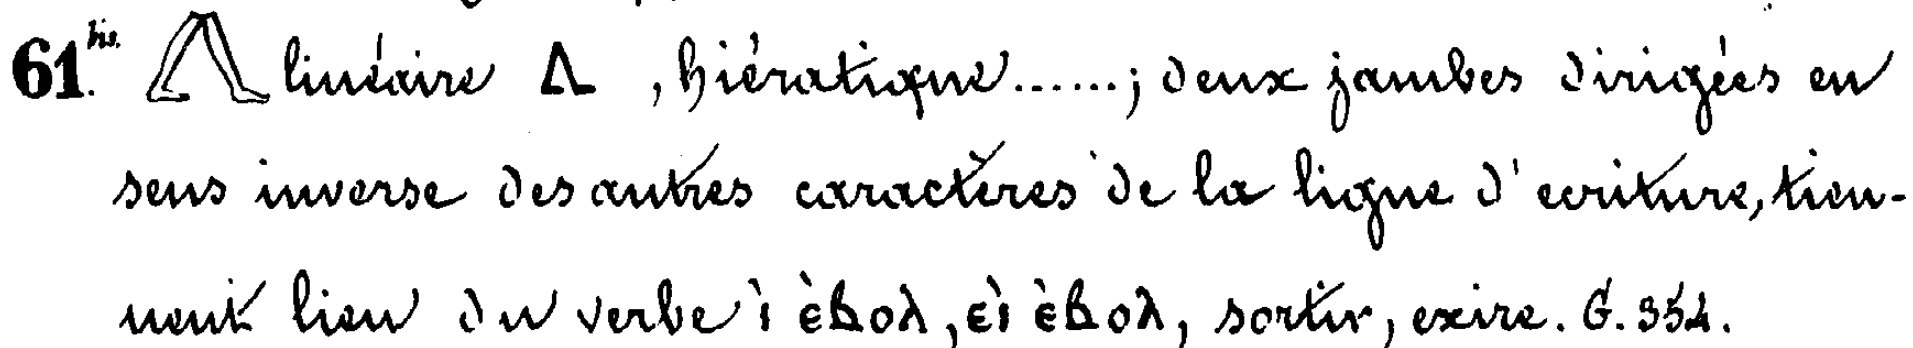 61.bis. 𓂽 linéaire Δ , hiératique......; deux jambes dirigées en
sens inverse des autres caractères de la ligne d'ecriture, tien-
nent lieu du verbe ⲓ̀ ⲉ̀ⲃⲟⲗ, ⲉⲓ̀ ⲉ̀ⲃⲟⲗ, sortir, exire. G. 354.